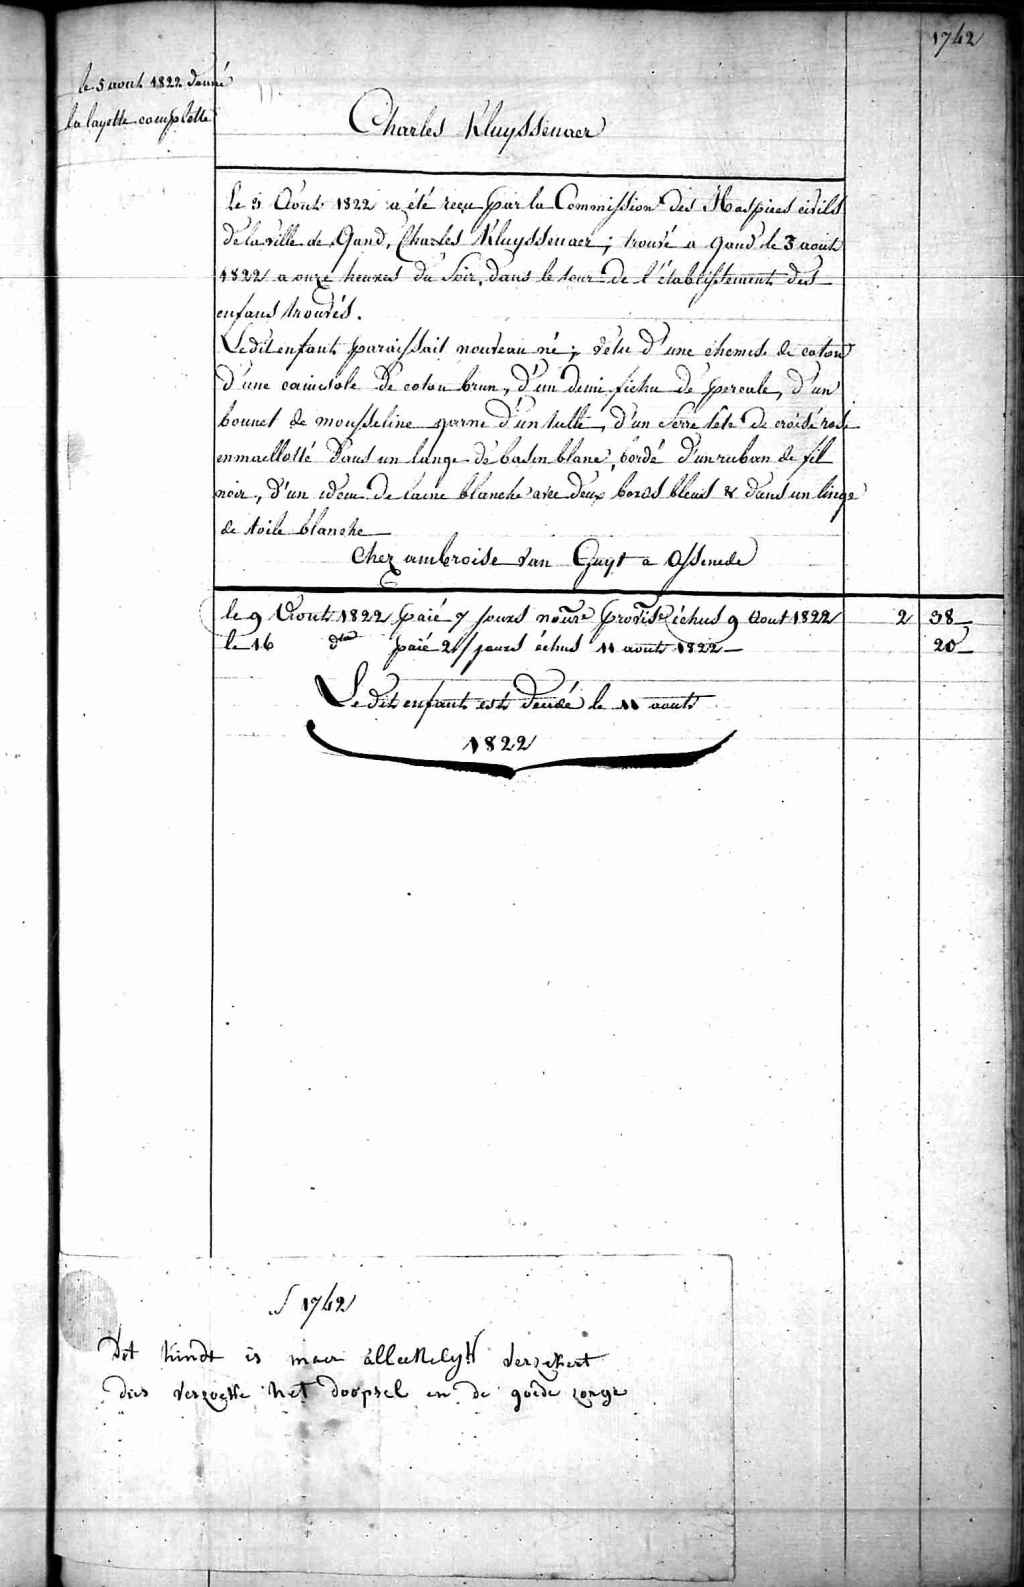 1742
le 5 aout 1822 donné
la layette complette
Charles Kluyssenaer
Le 5 Aout 1822 a été reçu par la Commission des Hospices civils
de la ville de Gand, Charles Kluyssenaer; trouvé a gand le 3 aout
1822 a onze heures du Soir, dans le tour de l'établissement des
enfans trouvés.
Ledit enfant paraissait nouveau né; vêtu d'une chemise de coton
d'une camisole de coton brun, d'un demi fichu de percale, d'un
bonnet de mousseline garne d'un tulle, d'un Serre tête de croisé rose
enmaellotté dans un lange de basin blanc, bordé d'un ruban de fil
noir, d'un idem de laine blanche avec deux bords bleus & dans un linge
de toile blanche
Chez ambroise Van Guyt a Assenede
le 9 Aout 1822 paié 7 jours nourre provise échus 9 Aout 1822 2 38
le 16 dto paié 2 jours échus 11 aout 1822 20
Ledit enfant est decédé le 11 aout
1822
N 1742
Det kindt is maer alleenelyk verzekert
dies verzoekke het doopsel en de goede zorge